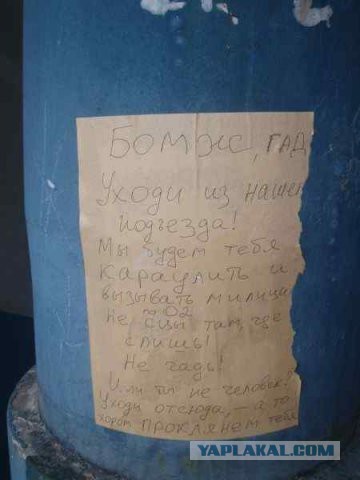 Бомж, гад
Уходи из нашег
подъезда!
Мы будем тебя
караулить и
вызывать милици
02
Не сцы там, где
спишь!
Не гадь!
Или ты не человек?
Уходи отсюда, – а то
хором ПРОКЛЯНЕМ тебя
YAPLAKAL.COM